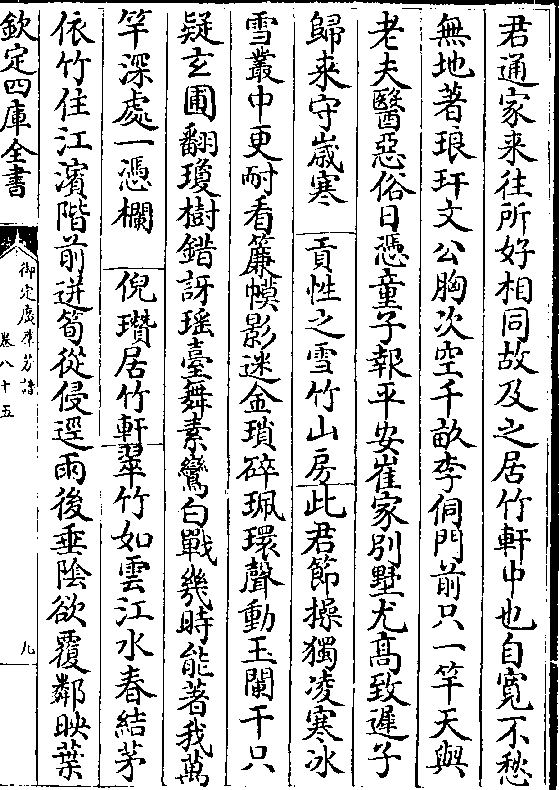 君通家来往所好相同故及之居竹軒中也自寛不愁
無地著琅玕文公胸次空千畝李侗門前只一竿天與
老夫醫惡俗日憑童子報平安崔家别墅尤髙致遲子
歸来守嵗寒 貢性之雪竹山房此君節操獨凌寒冰
雪叢中更耐看簾幙影迷金瑣碎珮環聲動玉闌干只
疑玄圃翻瓊樹錯訝瑶臺舞素鸞白戰幾時能著我萬
竿深處一憑欄 倪瓚居竹軒翠竹如雲江水春結茅
依竹住江濱階前迸筍從侵逕雨後垂陰欲覆鄰映葉
欽定四庫全書
御定廣羣芳譜
卷八十五
九